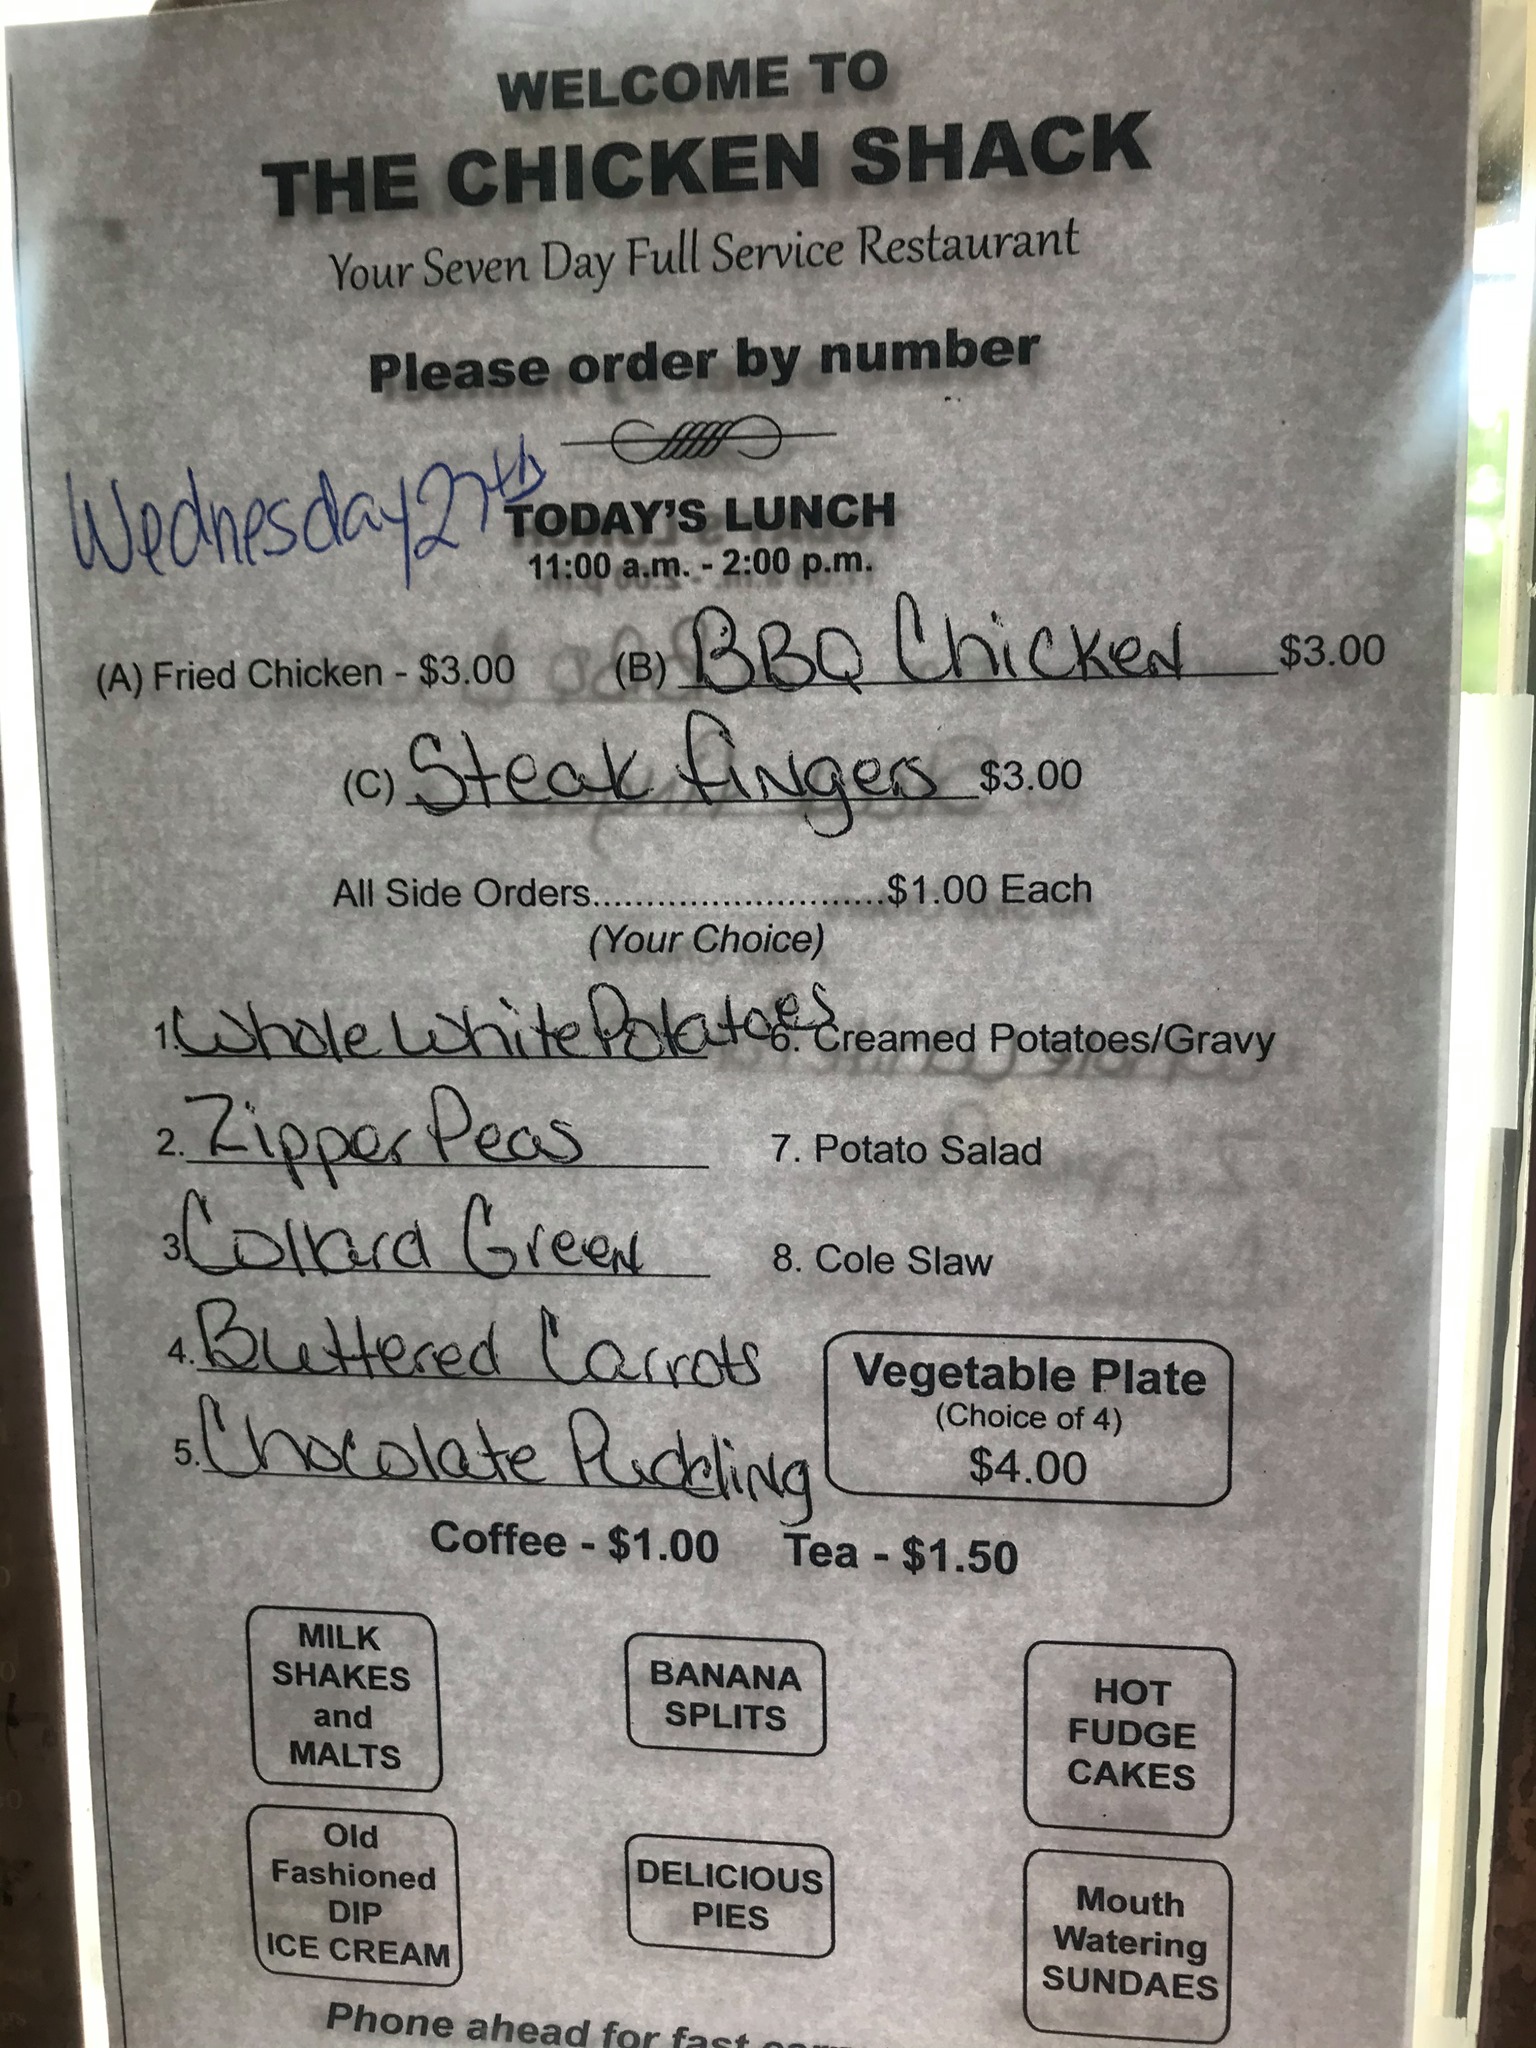 WELCOME TO
THE CHICKEN SHACK
Your Seven Day Full Service Restaurant
Please order by number
Wednesday 27th
TODAY'S LUNCH
11:00 a.m. - 2:00 p.m.
(A) Fried Chicken - $3.00 (B) BBQ Chicken $3.00
(C) Steak fingers $3.00
All Side Orders............................$1.00 Each
(Your Choice)
1. Whole White Potatoes 6. Creamed Potatoes/Gravy
2. Zipper Peas 7. Potato Salad
3 Collard Green 8. Cole Slaw
4. Buttered Carrots
5. Chocolate Pudding
Vegetable Plate
(Choice of 4)
$4.00
Coffee - $1.00 Tea - $1.50
MILK
SHAKES
and
MALTS
BANANA
SPLITS
HOT
FUDGE
CAKES
Old
Fashioned
DIP
ICE CREAM
DELICIOUS
PIES
Mouth
Watering
SUNDAES
Phone ahead for fast